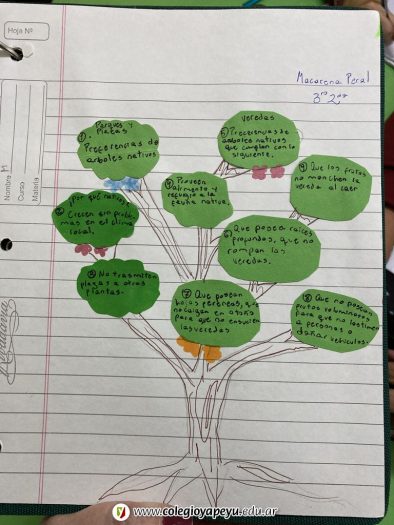 Hoja Nº
Nombre
Curso
Materia
Macarena Peral
3ro 2da
Parques y
Plazas
1).
Preferencias de
árboles nativos
Veredas
5) Preferencias de
árboles nativos
que cumplan con lo
siguiente.
3) Proveen
alimento y
refugio a la
fauna nativa.
4) Que los frutos
no manchen la
vereda al caer
¿Por qué nativos?
2)
Crecen sin proble
mas en el clima
local.
6) Que posean raíces
profundas, que no
rompan las
veredas.
No trasmiten
plagas a otras
plantas.
7) Que posean
hojas perennes, que
no caigan en otoño
para que no ensucien
las veredas
8) Que no posean
frutos voluminosos
para que no lastimen
a personas o
dañar vehículos.
www.colegioyapeyu.edu.ar